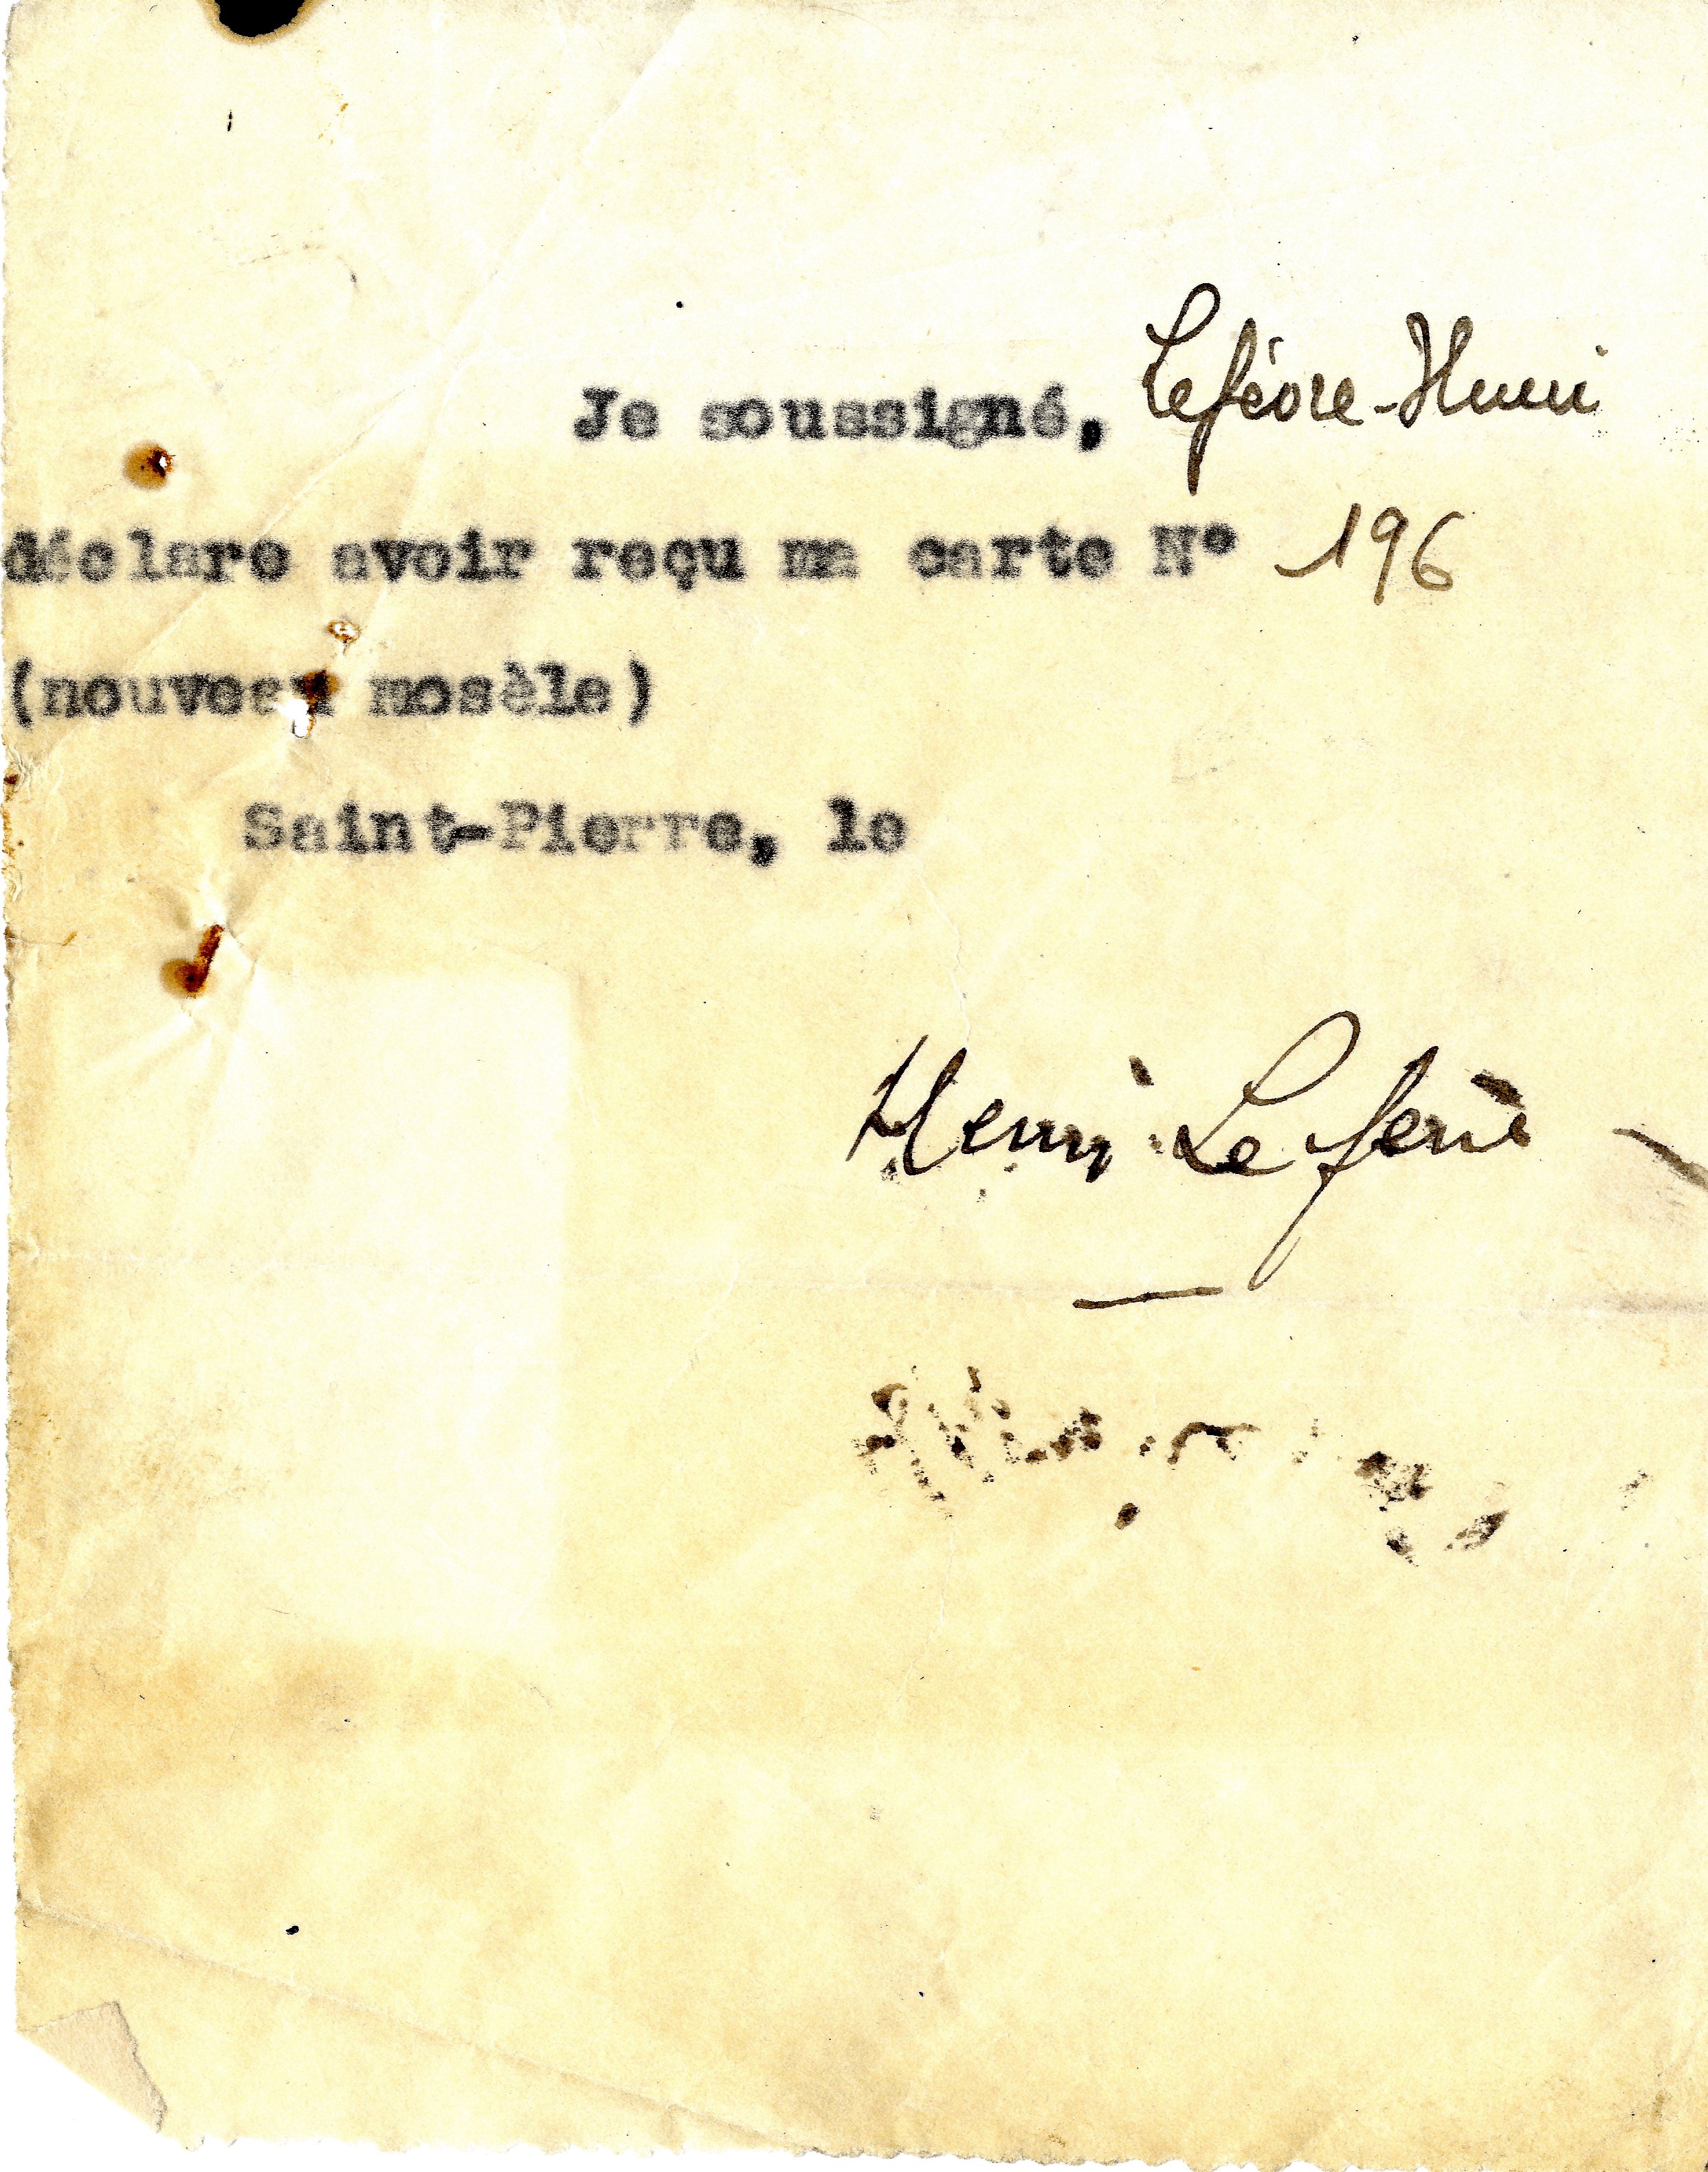 Je soussigné, Lefèvre-Henri
déclare avoir reçu ma carte N° 196
(nouveau mosèle)
Saint-Pierre, le
Henri Lefevre